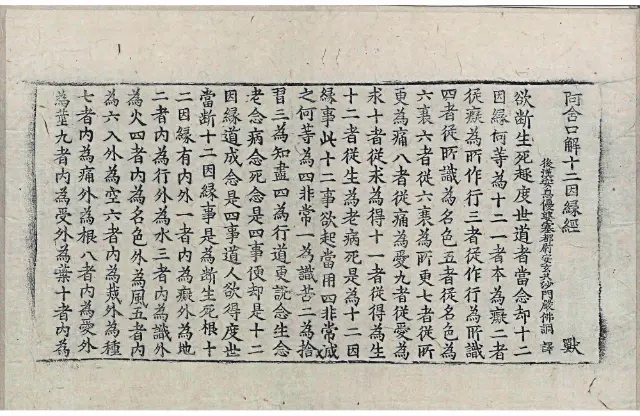 阿含口解十二因緣經 獸
後漢安息優婆塞都尉安玄共沙門嚴佛調 譯
欲斷生死趣度世道者當念却十二
因緣何等為十二一者本為癡二者
從癡為所作行三者從作行為所識
四者從所識為名色五者從名色為
六衰六者從六衰為所更七者從所
更為痛八者從痛為愛九者從愛為
求十者從求為得十一者從得為生
十二者從生為老病死是為十二因
緣事此十二事欲起當用四非常滅
之何等為四非常一為識苦二為捨
習三為知盡四為行道更說念生念
老念病念死念是四事便却是十二
因緣道成念是四事道人欲得度世
當斷十二因緣事是為斷生死根十
二因緣有內外一者內為癡外為地
二者內為行外為水三者內為識外
為火四者內為名色外為風五者內
為六入外為空六者內為栽外為種
七者內為痛外為根八者內為愛外
為莖九者內為受外為葉十者內為